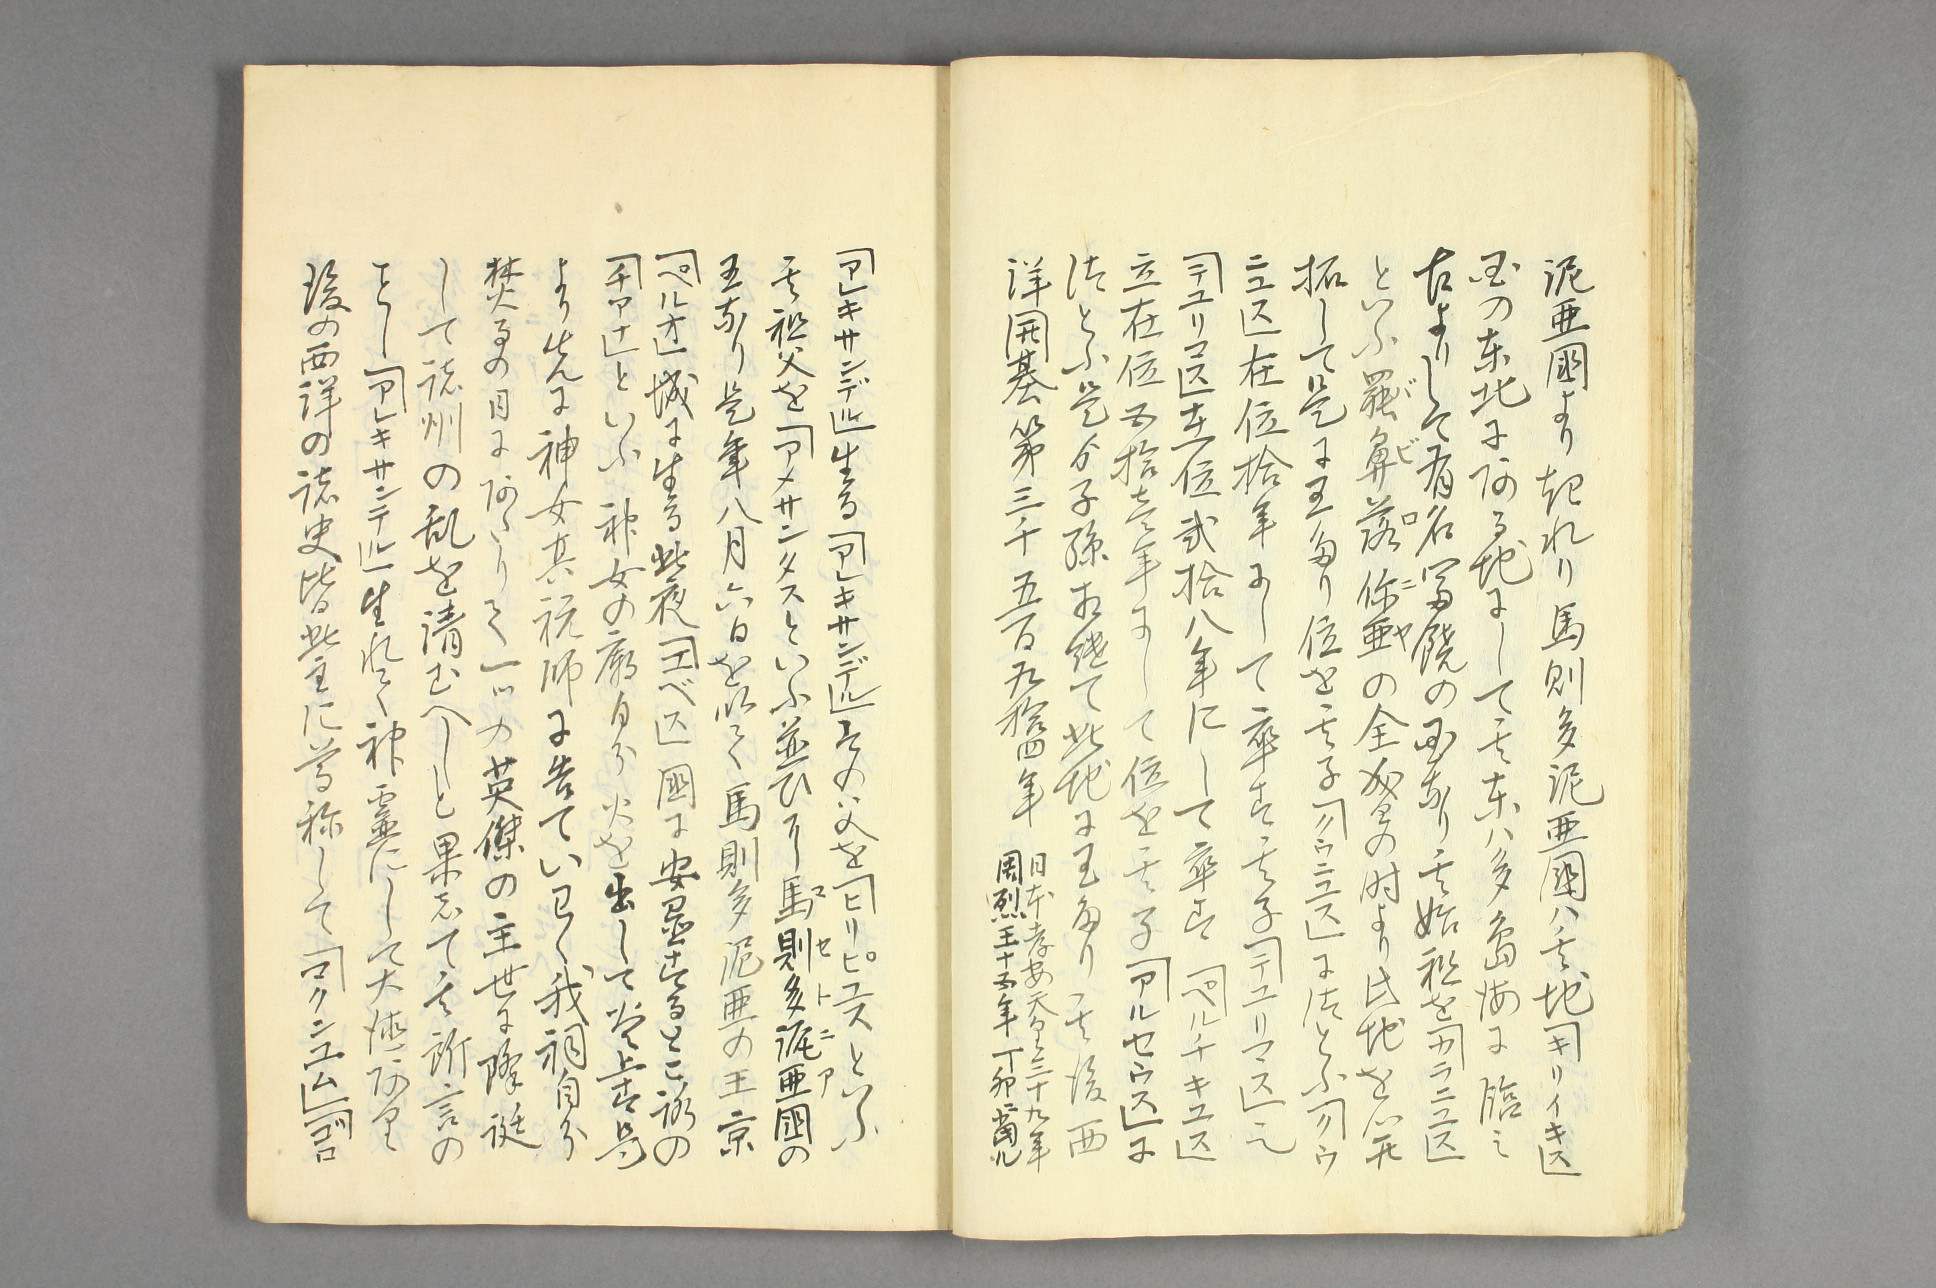 泥亜國より起れり馬則多泥亜國ハ其地「キリイキス」
国の東北に有る地にして其東ハ多島海に臨ミ
古よりして有名冨饒の国なり其始祖を「カラニユス」
といふ羅鼻落你亜の全盛の時より此地を開
拓して是に王たり位を其子「クウニユス」に伝ふ「クウ
ニユス」在位拾年にして卒す其子「テユリマス」立
「テユリマス」在位貳拾八年にして卒す「ペルチキユス」
立在位五拾壱年にして位を其子「アルセウス」に
伝ふ是より子孫相継て此地に王たり其後西
洋開基第三千五百九拾四年 日本孝安天皇三十九年
周烈王十五年丁卯ニ當ル
「アレキサンデル」生る「アレキサンデル」その父を「ヒリピユス」といふ
其祖父を「アメサンタス」といふ並ひに馬則多泥亜國の
王なり是年八月六日を以て馬則多泥亜の王京
「ペルオ」城に生る此夜「エベス」國に安置するところの
「チアナ」といふ神女の廟自ら火を出して炎上す是
より先に神女其祝師に告ていわく我祠自ら
焚るの日にあたりて一ツの英傑の主世に降誕
して諸州の乱を靖むへしと果して其所言の
ことし「アレキサンデル」生れて神霊にして大徳あり
後の西洋の諸史皆此主に尊称して「コクンユム」「ゴロ